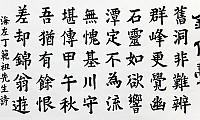 舊洞非難辨
群峰更覺幽
石靈如欲響
潭定不為流
無愧基川守
堪傳甲午秋
吾猶有餘恨
差卻錦翁遊
海左丁範祖先生詩